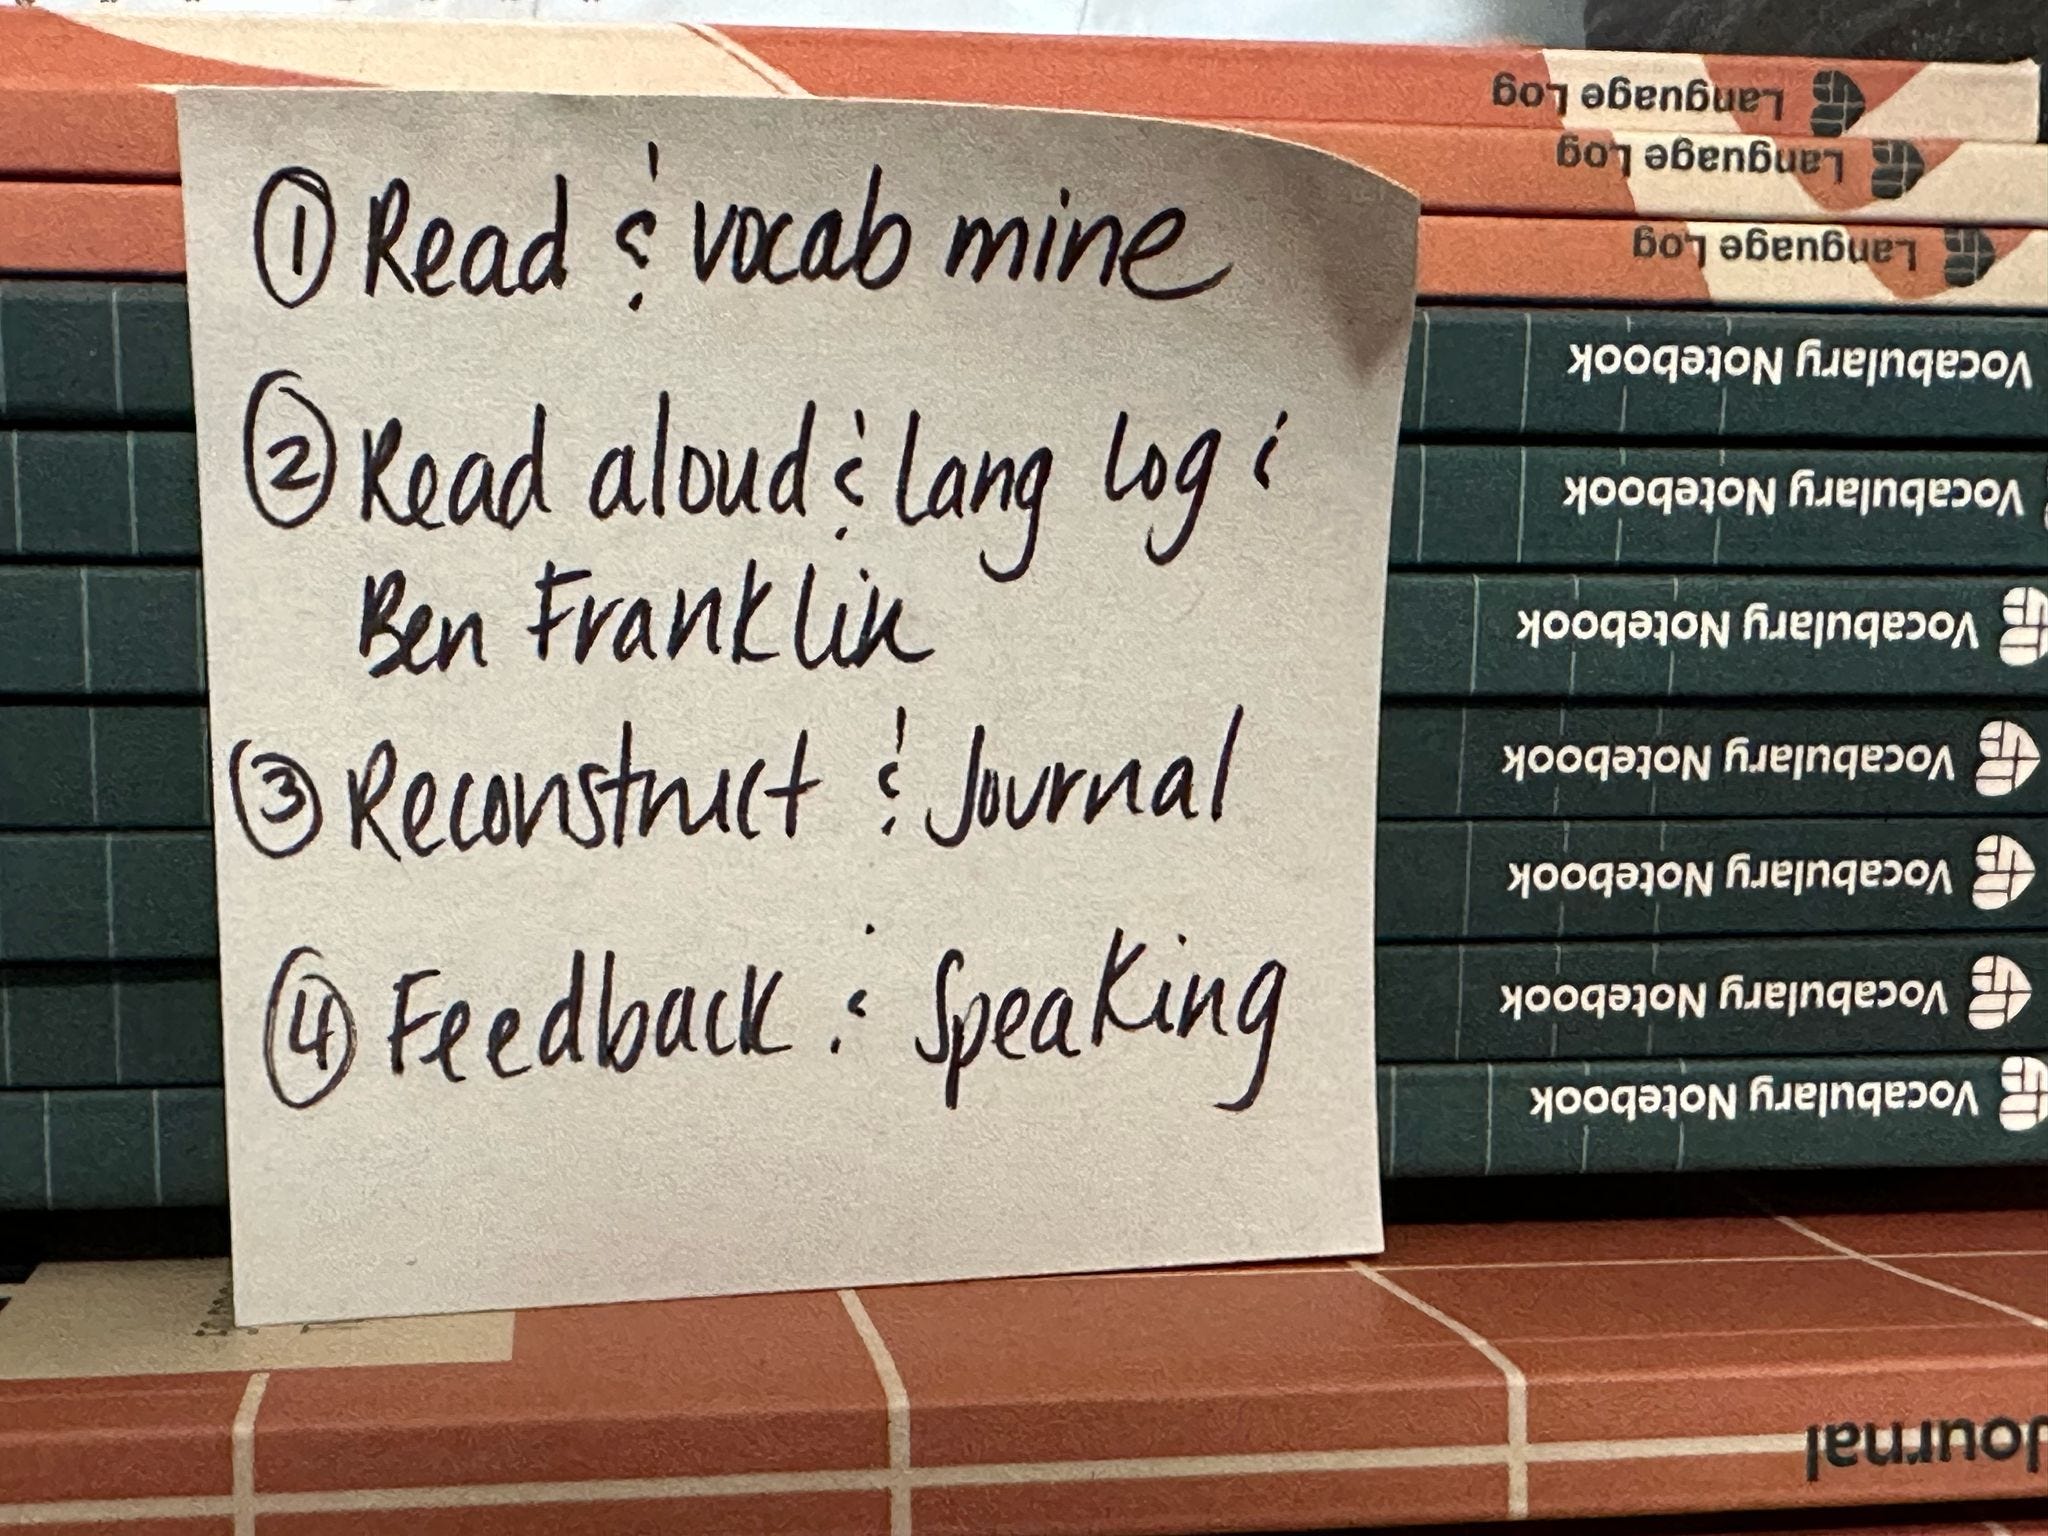 Language Log
Language Log
Language Log
Vocabulary Notebook
Vocabulary Notebook
Vocabulary Notebook
Vocabulary Notebook
Vocabulary Notebook
Vocabulary Notebook
Vocabulary Notebook
① Read & vocab mine
② Read aloud & lang log &
Ben Franklin
③ Reconstruct & Journal
④ Feedback & Speaking
Journal